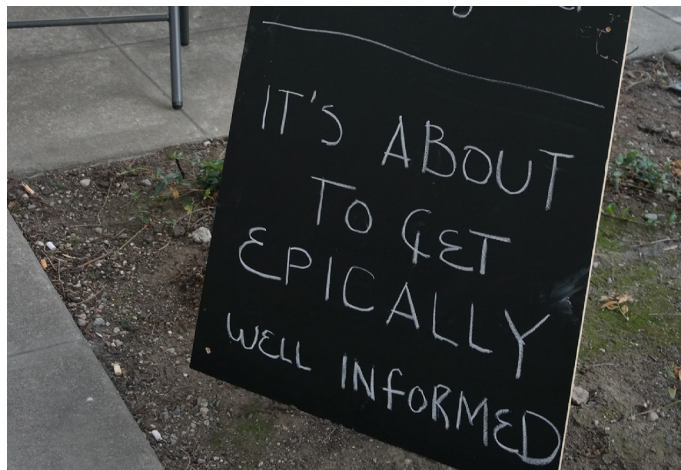 IT'S ABOUT
TO GET
EPICALLY
WELL INFORMED